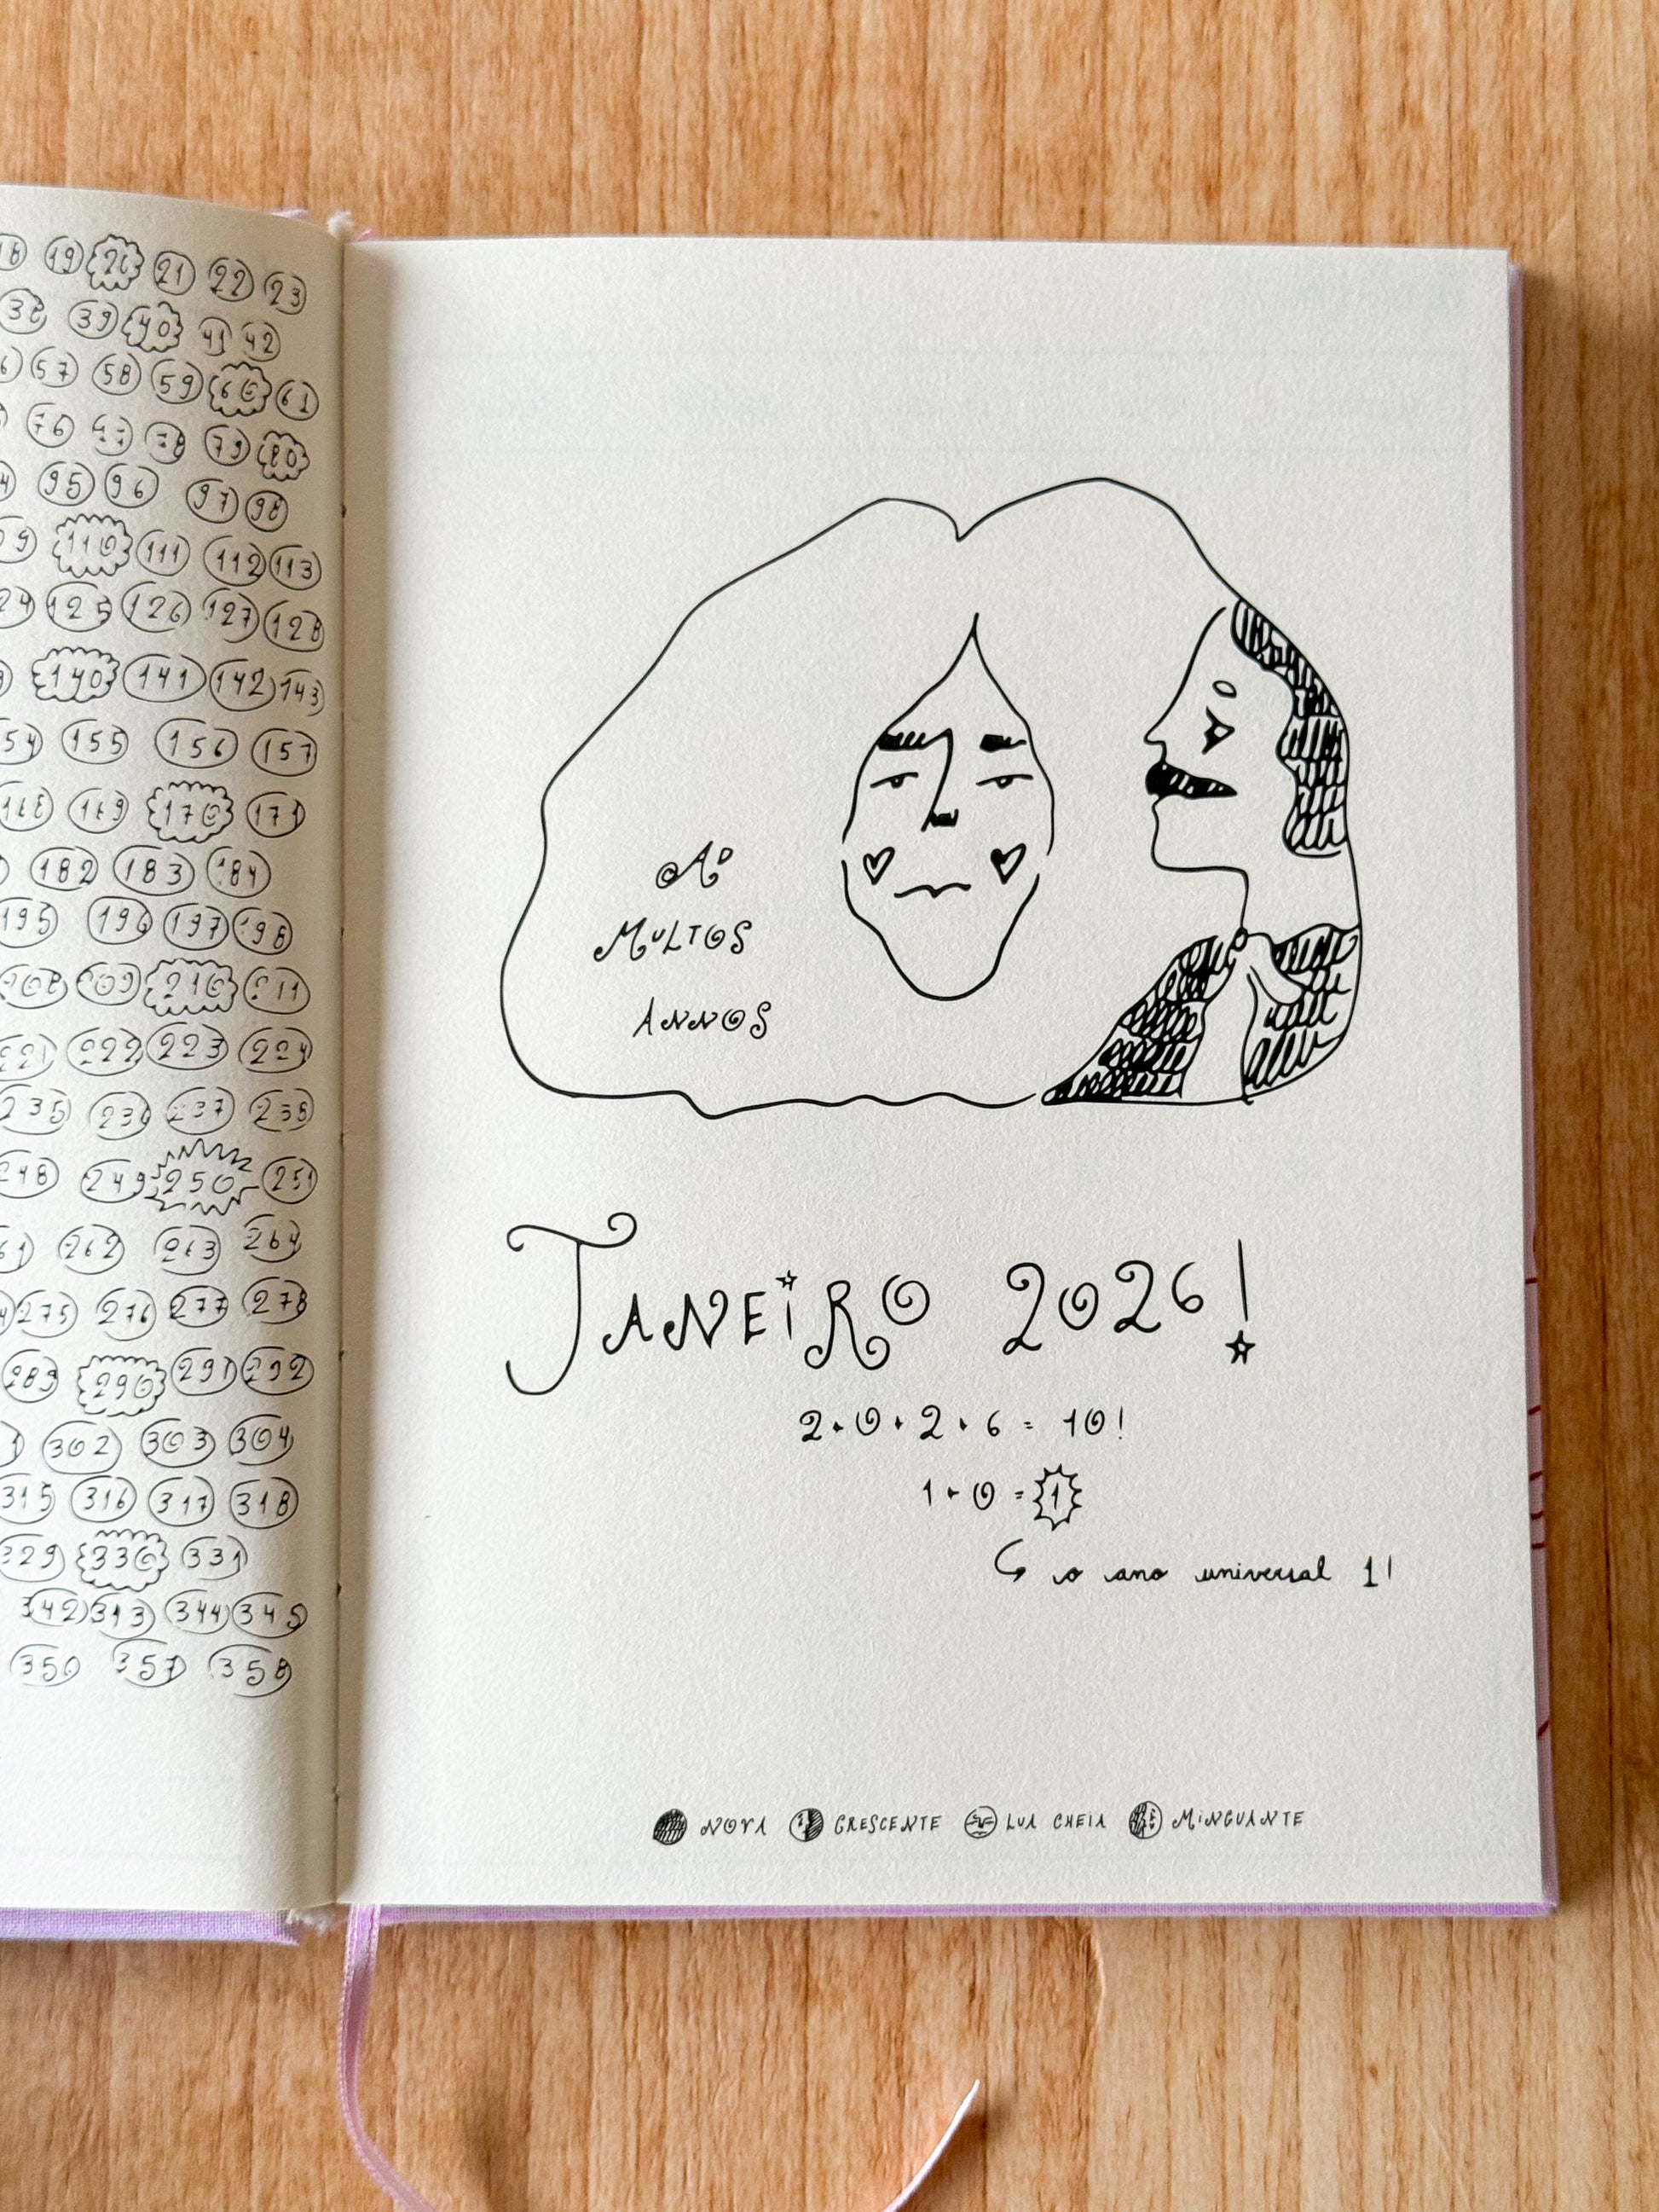 18 19 20 21 22 23
38 39 40 41 42
57 58 59 60 61
76 77 78 79 80
95 96 97 98
110 111 112 113
125 126 127 128
140 141 142 143
155 156 157
168 169 170 171
182 183 184
195 196 197 198
208 209 210 211
221 222 223 224
235 236 237 238
248 249 250 251
262 263 264
275 276 277 278
289 290 291 292
302 303 304
315 316 317 318
329 330 331
342 343 344 345
356 357 358
AD
MULTOS
ANNOS
JANEIRO 2026!
2+0+2+6=10!
1+0=1
o ano universal 1!
NOVA CRESCENTE LUA CHEIA MINGUANTE